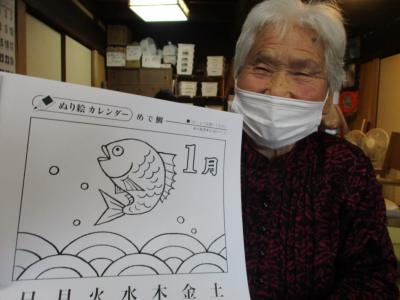 ぬり絵カレンダー めで鯛
1月
日 月 火 水 木 金 土